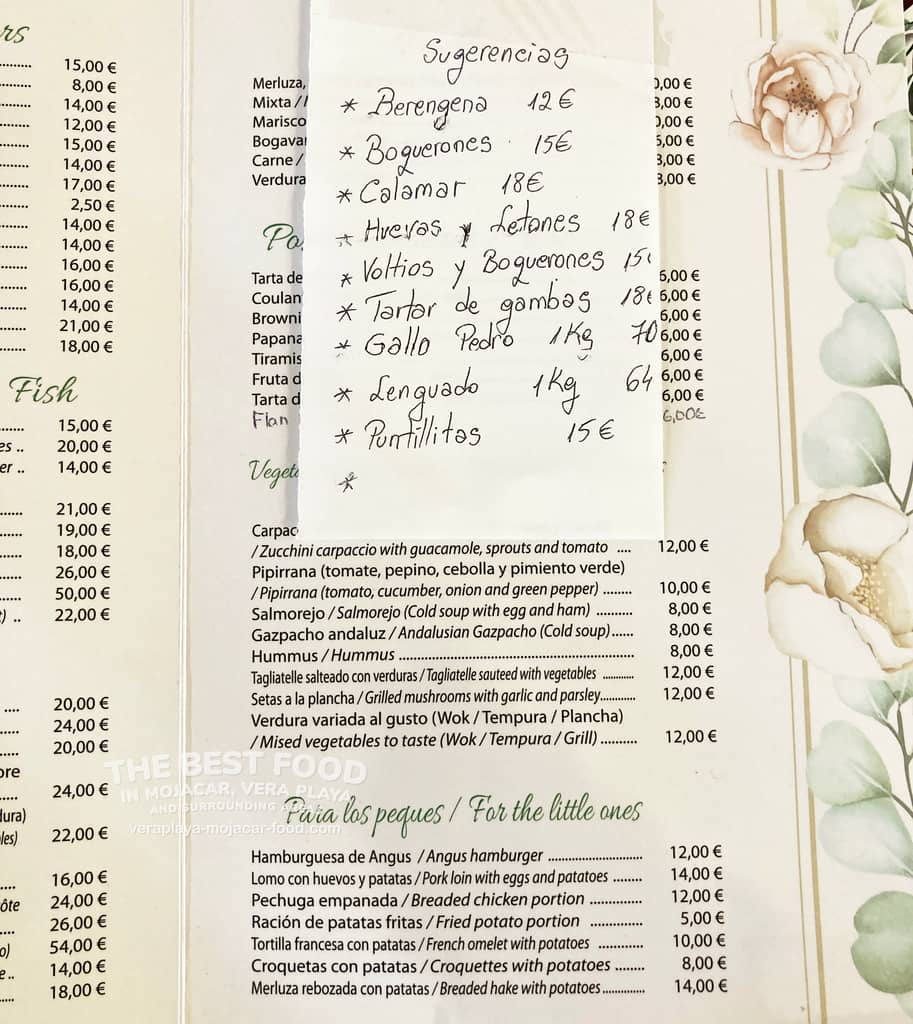 rs
15,00 €
8,00 €
14,00 €
12,00 €
15,00 €
14,00 €
17,00 €
2,50 €
14,00 €
14,00 €
16,00 €
16,00 €
14,00 €
21,00 €
18,00 €
Fish
15,00 €
es .. 20,00 €
er .. 14,00 €
21,00 €
19,00 €
18,00 €
26,00 €
50,00 €
) .. 22,00 €
20,00 €
24,00 €
20,00 €
ore
24,00 €
dura)
les) 22,00 €
16,00 €
ôte 24,00 €
26,00 €
o) 54,00 €
e .. 14,00 €
18,00 €
Sugerencias
* Berengena 12€
* Boquerones 15€
* Calamar 18€
* Huevas y Letones 18€
* Voltios y Boquerones 15
* Tartar de gambas 18€
* Gallo Pedro 1Kg 70
* Lenguado 1Kg 64
* Puntillitas 15€
*
Merluza, 0,00 €
Mixta / 3,00 €
Marisco 0,00 €
Bogava 5,00 €
Carne / 3,00 €
Verdura 3,00 €
Po
Tarta de 6,00 €
Coulan 6,00 €
Browni 6,00 €
Papana 6,00 €
Tiramis 6,00 €
Fruta d 6,00 €
Tarta d 6,00 €
Flan 6,00€
Veget
Carpac
/ Zucchini carpaccio with guacamole, sprouts and tomato .... 12,00 €
Pipirrana (tomate, pepino, cebolla y pimiento verde)
/ Pipirrana (tomato, cucumber, onion and green pepper) ........ 10,00 €
Salmorejo / Salmorejo (Cold soup with egg and ham) .......... 8,00 €
Gazpacho andaluz / Andalusian Gazpacho (Cold soup)...... 8,00 €
Hummus / Hummus ........ 8,00 €
Tagliatelle salteado con verduras / Tagliatelle sauteed with vegetables ............ 12,00 €
Setas a la plancha / Grilled mushrooms with garlic and parsley............ 12,00 €
Verdura variada al gusto (Wok / Tempura / Plancha)
/ Mised vegetables to taste (Wok / Tempura / Grill) .......... 12,00 €
THE BEST FOOD
IN MOJACAR, VERA PLAYA
AND SURROUNDING
veraplaya-mojacar-food.com
Para los peques / For the little ones
Hamburguesa de Angus / Angus hamburger ............ 12,00 €
Lomo con huevos y patatas / Pork loin with eggs and patatoes ........ 14,00 €
Pechuga empanada / Breaded chicken portion ............. 12,00 €
Ración de patatas fritas / Fried potato portion ............... 5,00 €
Tortilla francesa con patatas / French omelet with potatoes ............ 10,00 €
Croquetas con patatas / Croquettes with potatoes ........ 8,00 €
Merluza rebozada con patatas / Breaded hake with potatoes............ 14,00 €